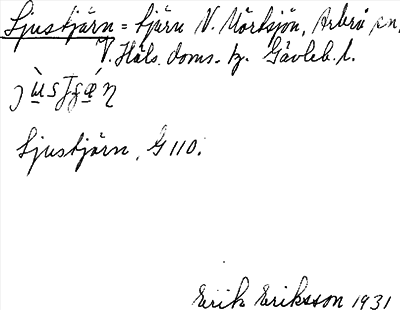 Ljustjärn = tjärn V. Mörtsjön, Arbrå sn,
V. Häls. doms. hg. Gävleb. l.
Ljustjärn, G 110.
Erik Eriksson 1931